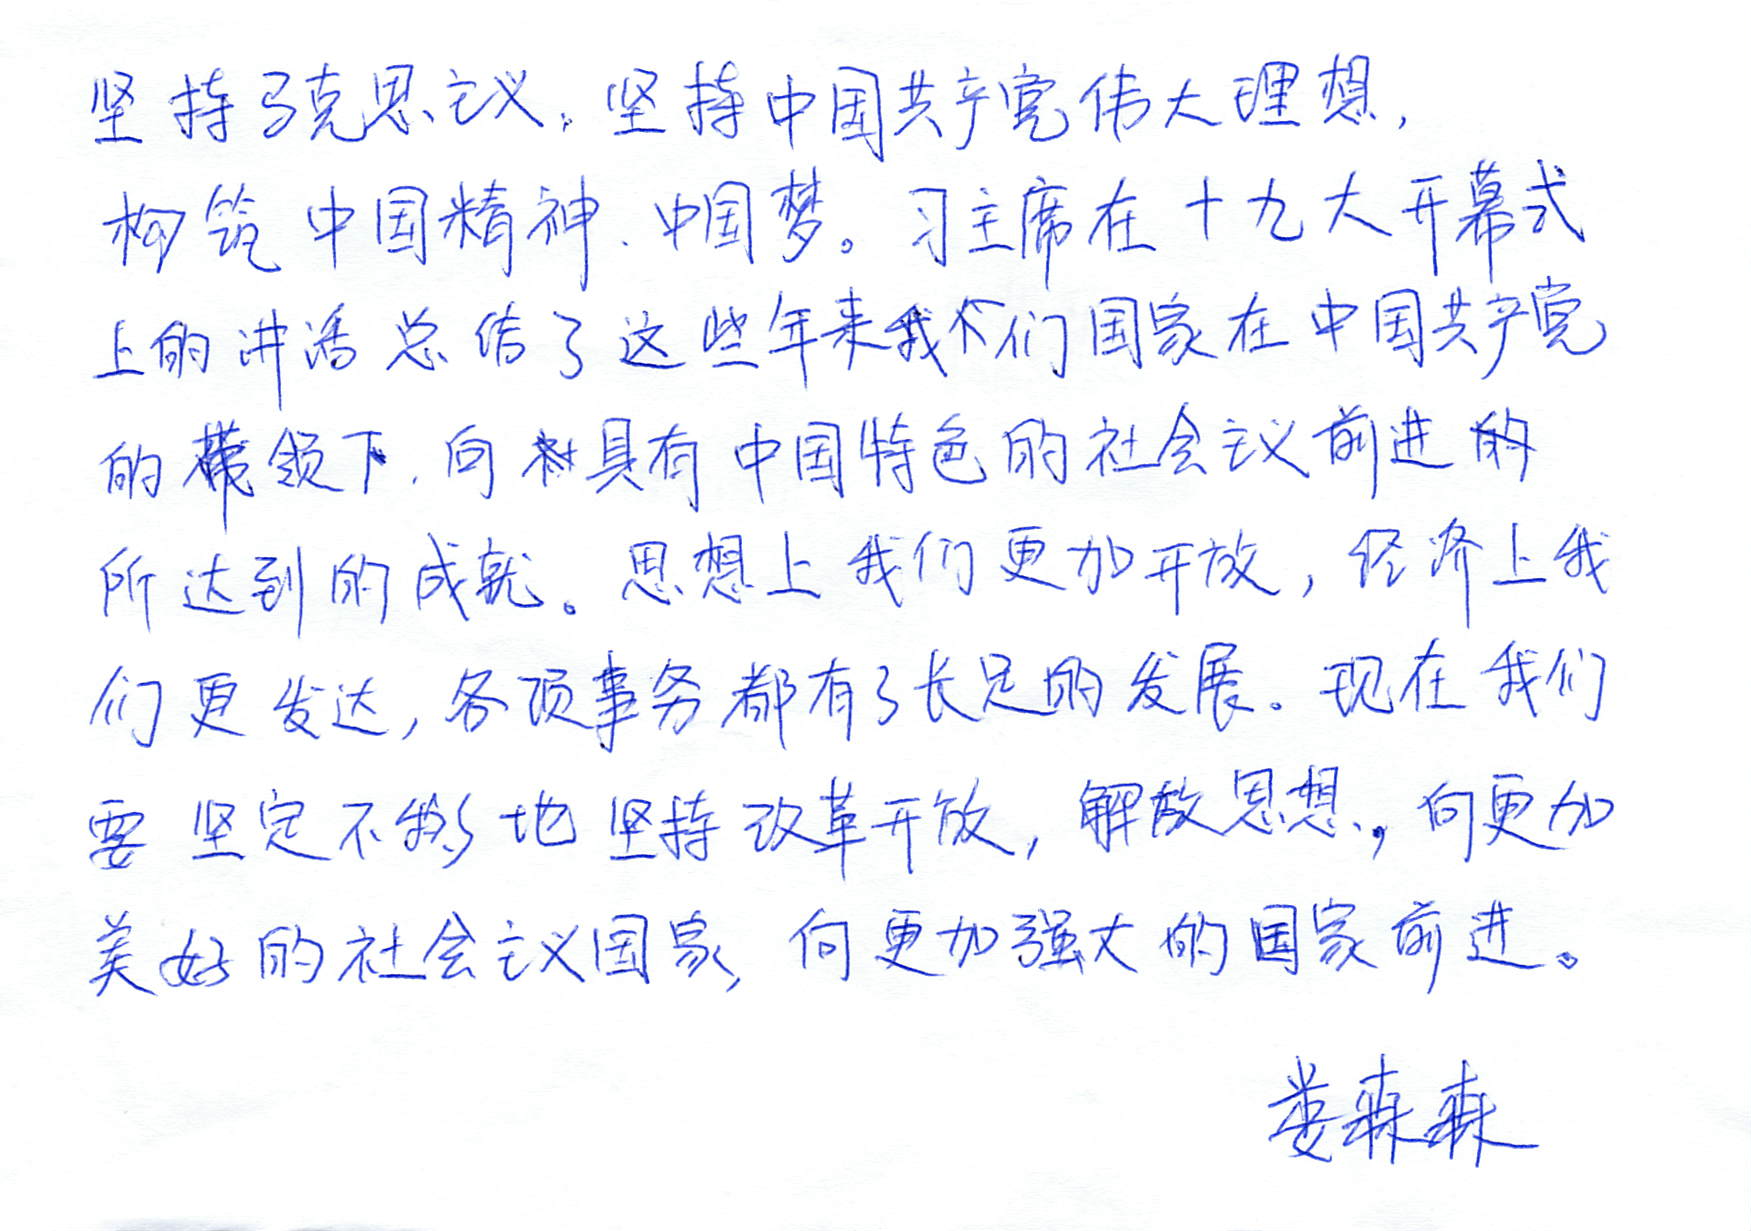 坚持马克思主义。坚持中国共产党伟大理想,
构筑中国精神、中国梦。习主席在十九大开幕式
上的讲话总结了这些年来我们国家在中国共产党
的带领下,向具有中国特色的社会主义前进的
所达到的成就。思想上我们更加开放,经济上我
们更发达,各项事务都有了长足的发展。现在我们
要坚定不移地坚持改革开放,解放思想,向更加
美好的社会主义国家,向更加强大的国家前进。
娄森森